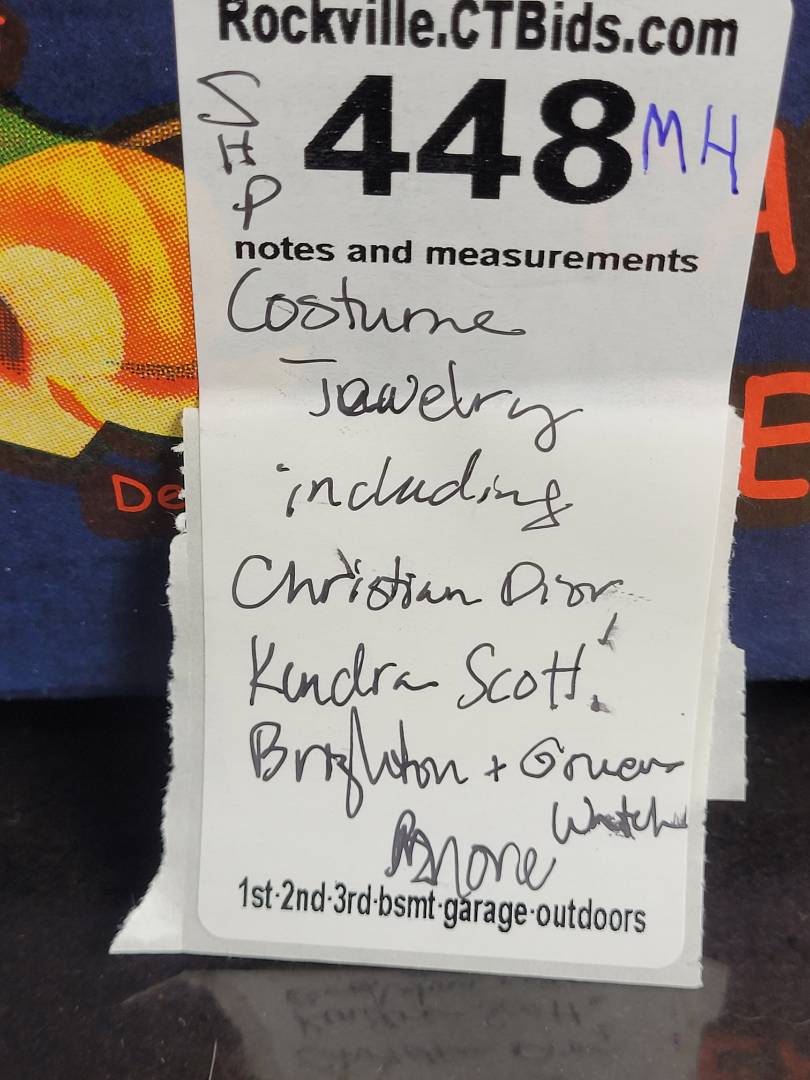 Rockville.CTBids.com
SHP 448 MH
notes and measurements
Costume
Jewelry
including
Christian Dior,
Kendra Scott,
Brighton + Gruen
Watch
more
1st·2nd·3rd·bsmt·garage·outdoors
De
E